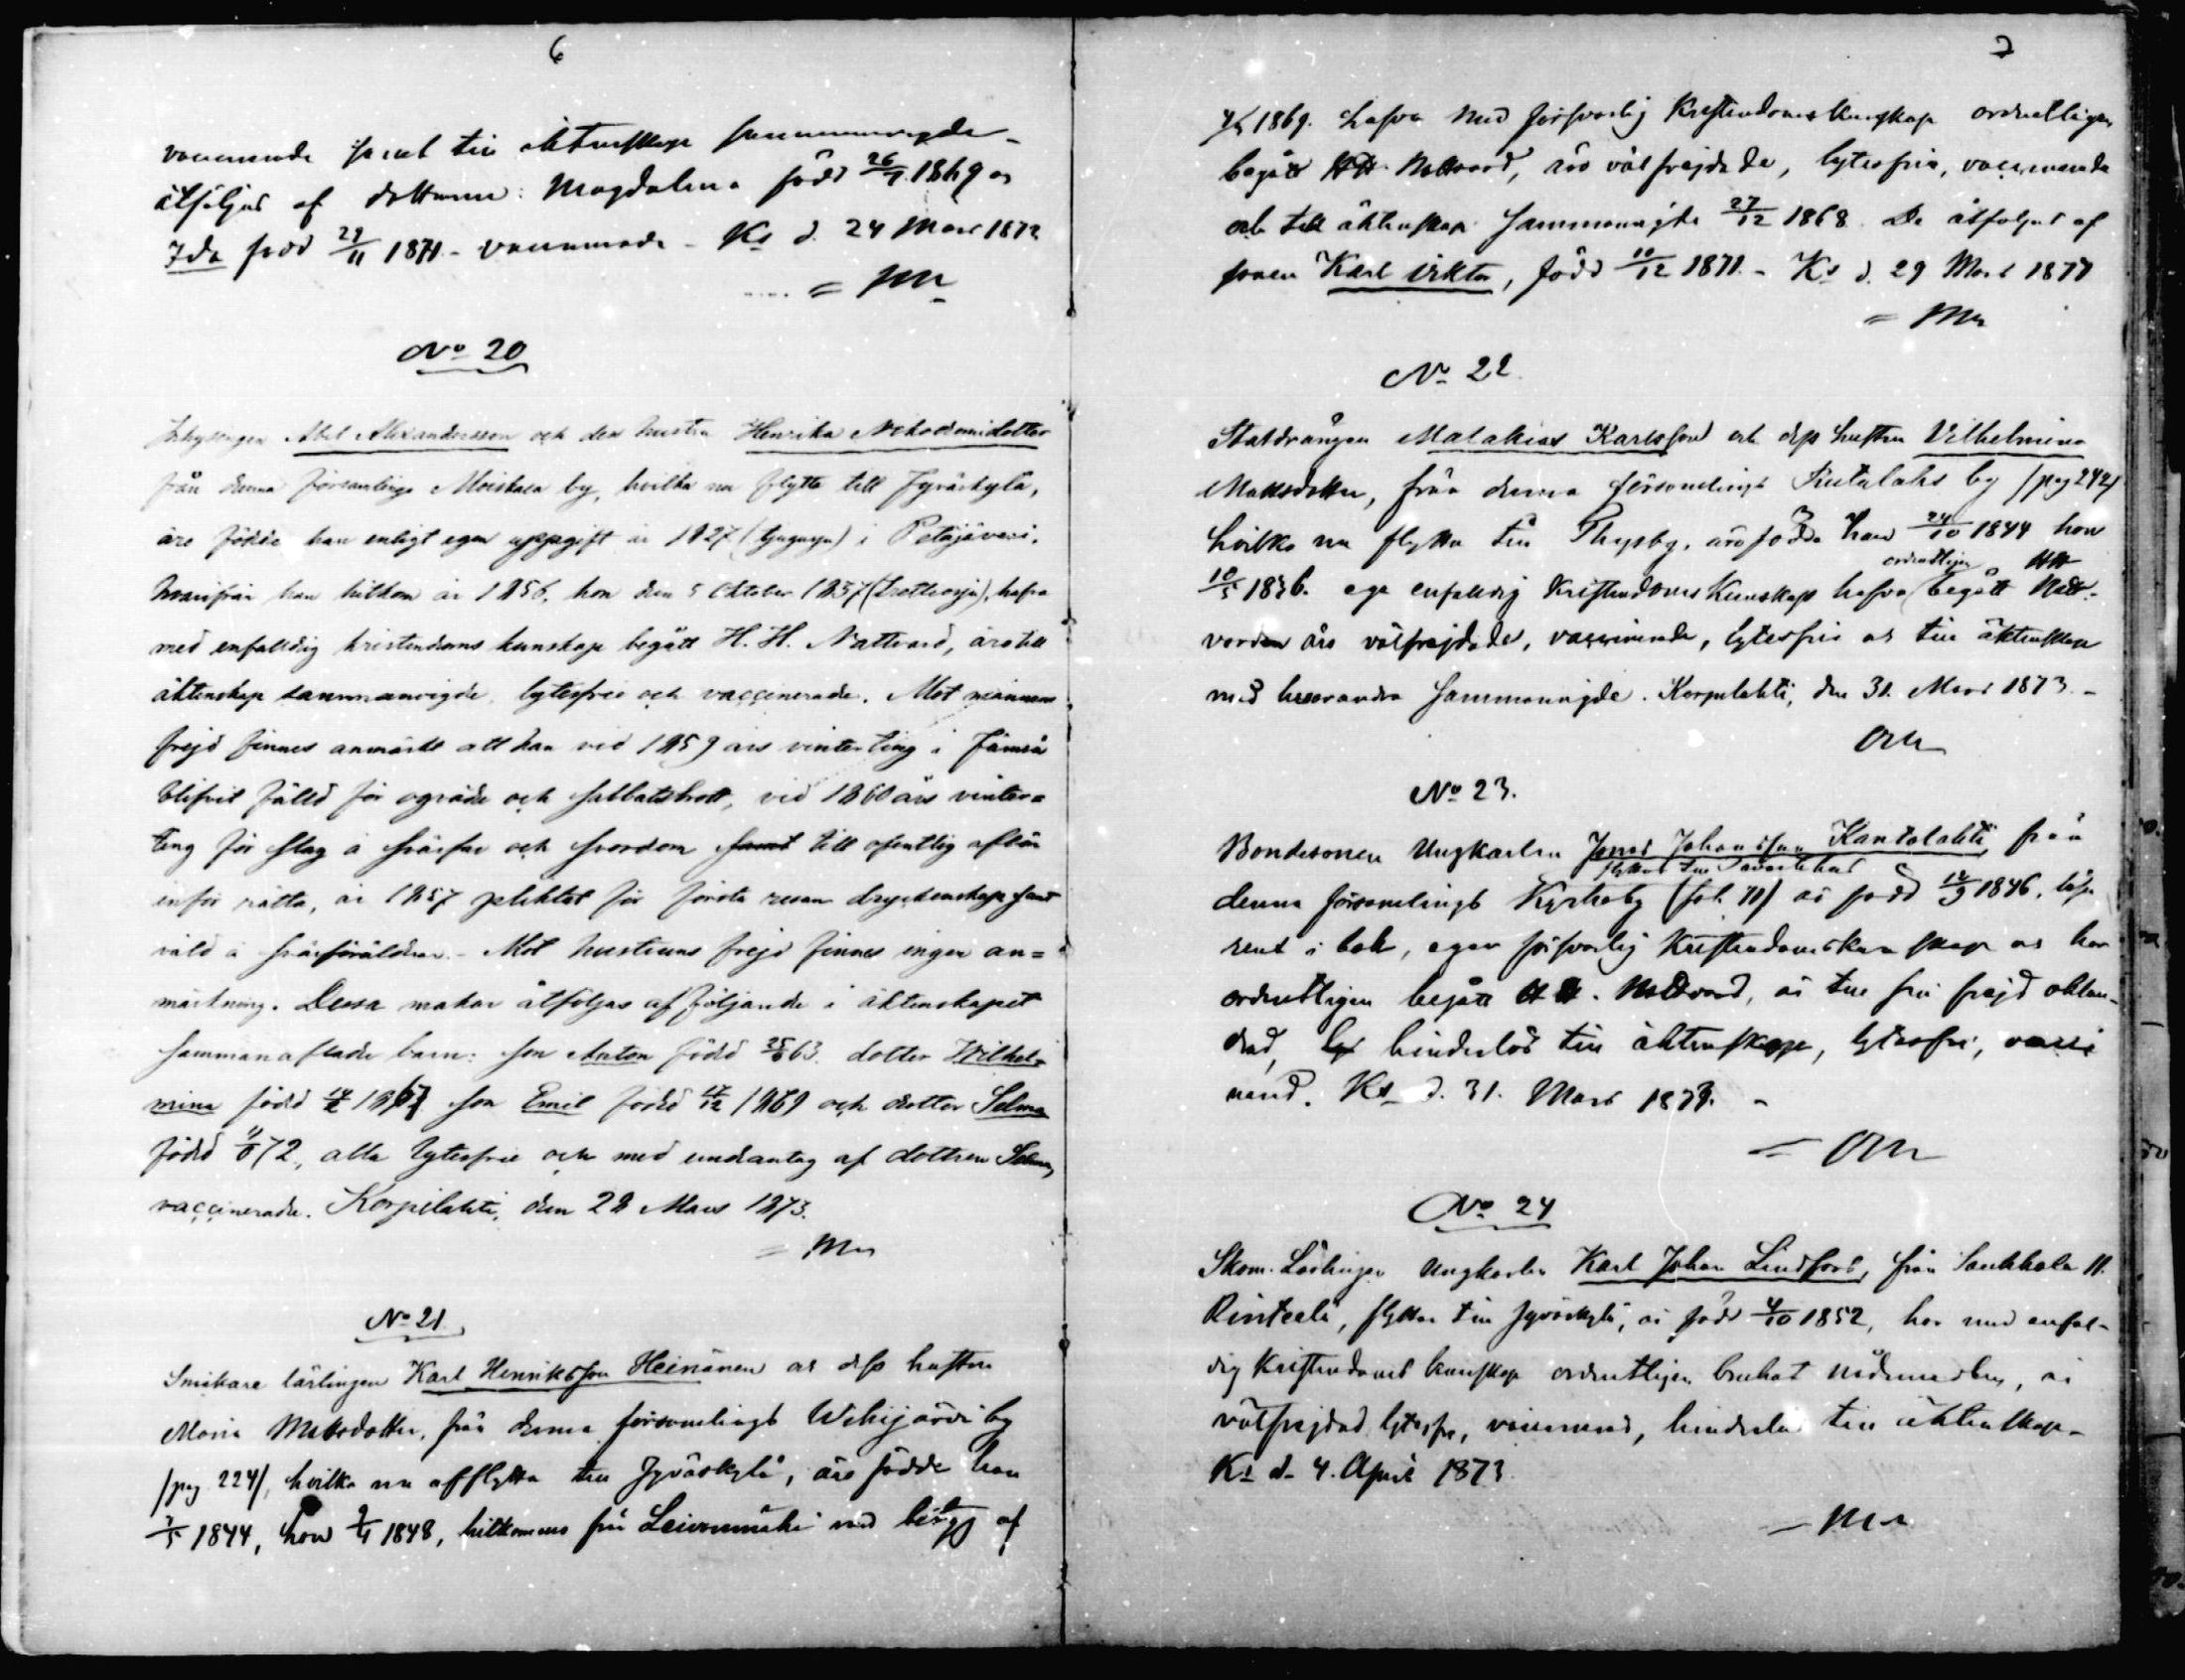 6
samt till äktenskap sammanvigda
åtföljas af döttrarna: Magdalena född 26/7 1869 o
Ida född 29/11 1871 - Ks d. 24 Mars 1873
= Mn
No 20
Inhysingen Abel Alexandersson och dess hustru Henrika Nikodemidotter
från denna församlings Moiskala by, hvilka nu flytta till Jyväskylä,
äro födde han enligt egen uppgift år 1827 (tjugusju) i Petäjävesi,
hvarifrån han hitkom år 1856, hon den 5 Oktober 1837 (trettiosju), hafva
med enfalldig kristendoms kunskap begått H. H. Nattvard, äro till
äktenskap sammanvigde, lytesfrie och vaccinerade. Mot mannens
frejd finnes anmärkt att han vid 1859 års vinterting i Jämsä
blifvit fälld för ogräde och sabbatsbrott, vid 1860 års vinter=
ting för slag å svärfar och svordom samt till offentlig afbön
inför rätta, år 1857 pliktat för första resan dryckenskap samt
våld å svärföräldrar. - Mot hustruns frejd finnes ingen an=
märkning. Dessa makar åtföljas af följande i äktenskapet
sammanaflade barn: son Anton född 25/6 63. dotter Wilhel-
mina född 1867 son Emil född 17/12 1869 och dotter Selma
född 11/8 72, alla lytesfrie och med undantag af dottren Selma,
vaccinerade. Korpilahti, den 28 Mars 1873.
= Mn
No 21
Snickare lärlingen Karl Henriksson Heinänen och dess hustru
Maria Matsdotter, från denna församlings Wihijärvi by
/pag 224/, hvilka nu afflytta till Jyväskylä, äro födde han
7/5 1844, hon 1848, hitkommo från Leivonmäki med betyg af
7
1869. hafva med försvarlig Kristendoms kunskap ordentligen
begått HH. Nattvard, äro välfrejdade, lytesfria, vaccinerade
och till äktenskap sammanvigde 27/12 1868. De åtföljas af
sonen Karl Viktor, född 10/12 1871. - Ks d. 29 Mars 1873
= Mn
No 22
Statdrängen Malakias Karlsson och dess hustru Vilhelmina
Matsdotter, från denna församlings Rutalahti by /pag 242/
hvilka nu flytta till Thysby, äro födde han 24/10 1844 hon
10/5 1836. ega enfalldig Kristendoms Kunskap hafva ordentligen begått HH Natt-
varden äro välfrejdade, vaccinerade, lytesfria och till äktenskap
med hvarandra sammanvigde. Korpilahti, den 31. Mars 1873. -
Mn
No 23.
Bondesonen Ungkarlen Jonas Johansson Kantolahti från
flyttar till Tavastehus
denna församlings Kyrkoby (fol. 70) är född 12/9 1846, läser
rent i bok, eger försvarlig Kristendomskunskap och har
ordentligen begått H H. Nattvard, är till sin frejd oklan-
drad, hinderlös till äktenskap, lytesfri, vacci
nerad. Ks d. 31. Mars 1873. -
= Mn
No 24
Skom. Lärlingen Ungkarlen Karl Johan Lindfors, från Saukkola 11.
Rinteelä, flyttar till Jyväskylä, är född 4/10 1852, har med enfal-
dig Kristendoms kunskap ordentligen brukat nådemedlen, är
välfrejdad, lytesfri, vaccinerad, hinderlös till äktenskap -
Ks d. 4. April 1873.
= Mn